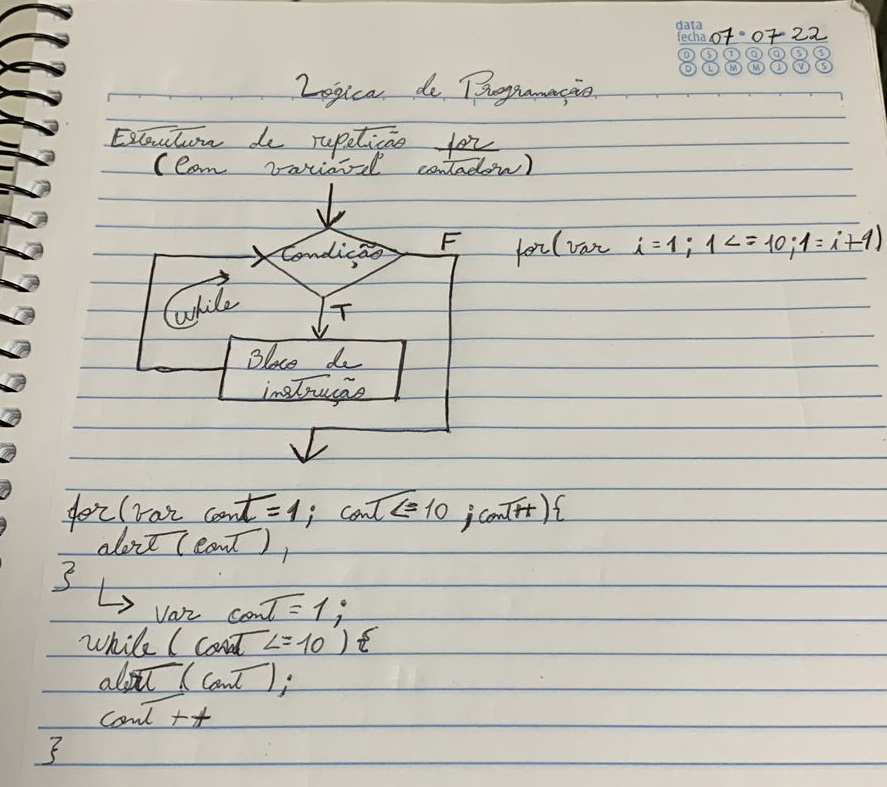 data
fecha 07 · 07 · 22
D S T Q Q S S
D L M M J V S
Lógica de Programação
Estrutura de repetição for
(Com variável contadora)
Condição
F
for(var i=1; 1<=10; 1=i+1)
while
T
Bloco de
instrução
for(var cont=1; cont<=10 ;cont++){
alert(cont),
}
var cont=1;
while(cont<=10){
alert(cont);
cont++
}